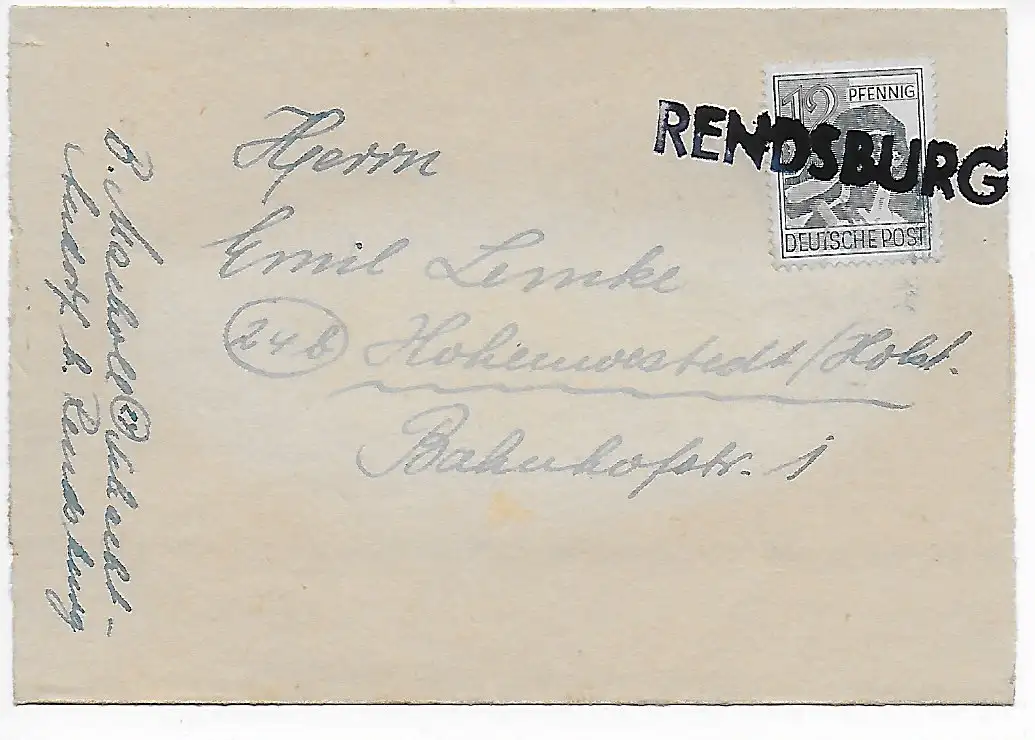 12 PFENNIG
RENDSBURG
DEUTSCHE POST
Herrn
Emil Lemke
24b Hohenwestedt/Holst.
Bahnhofstr. 1
b. Rendsburg